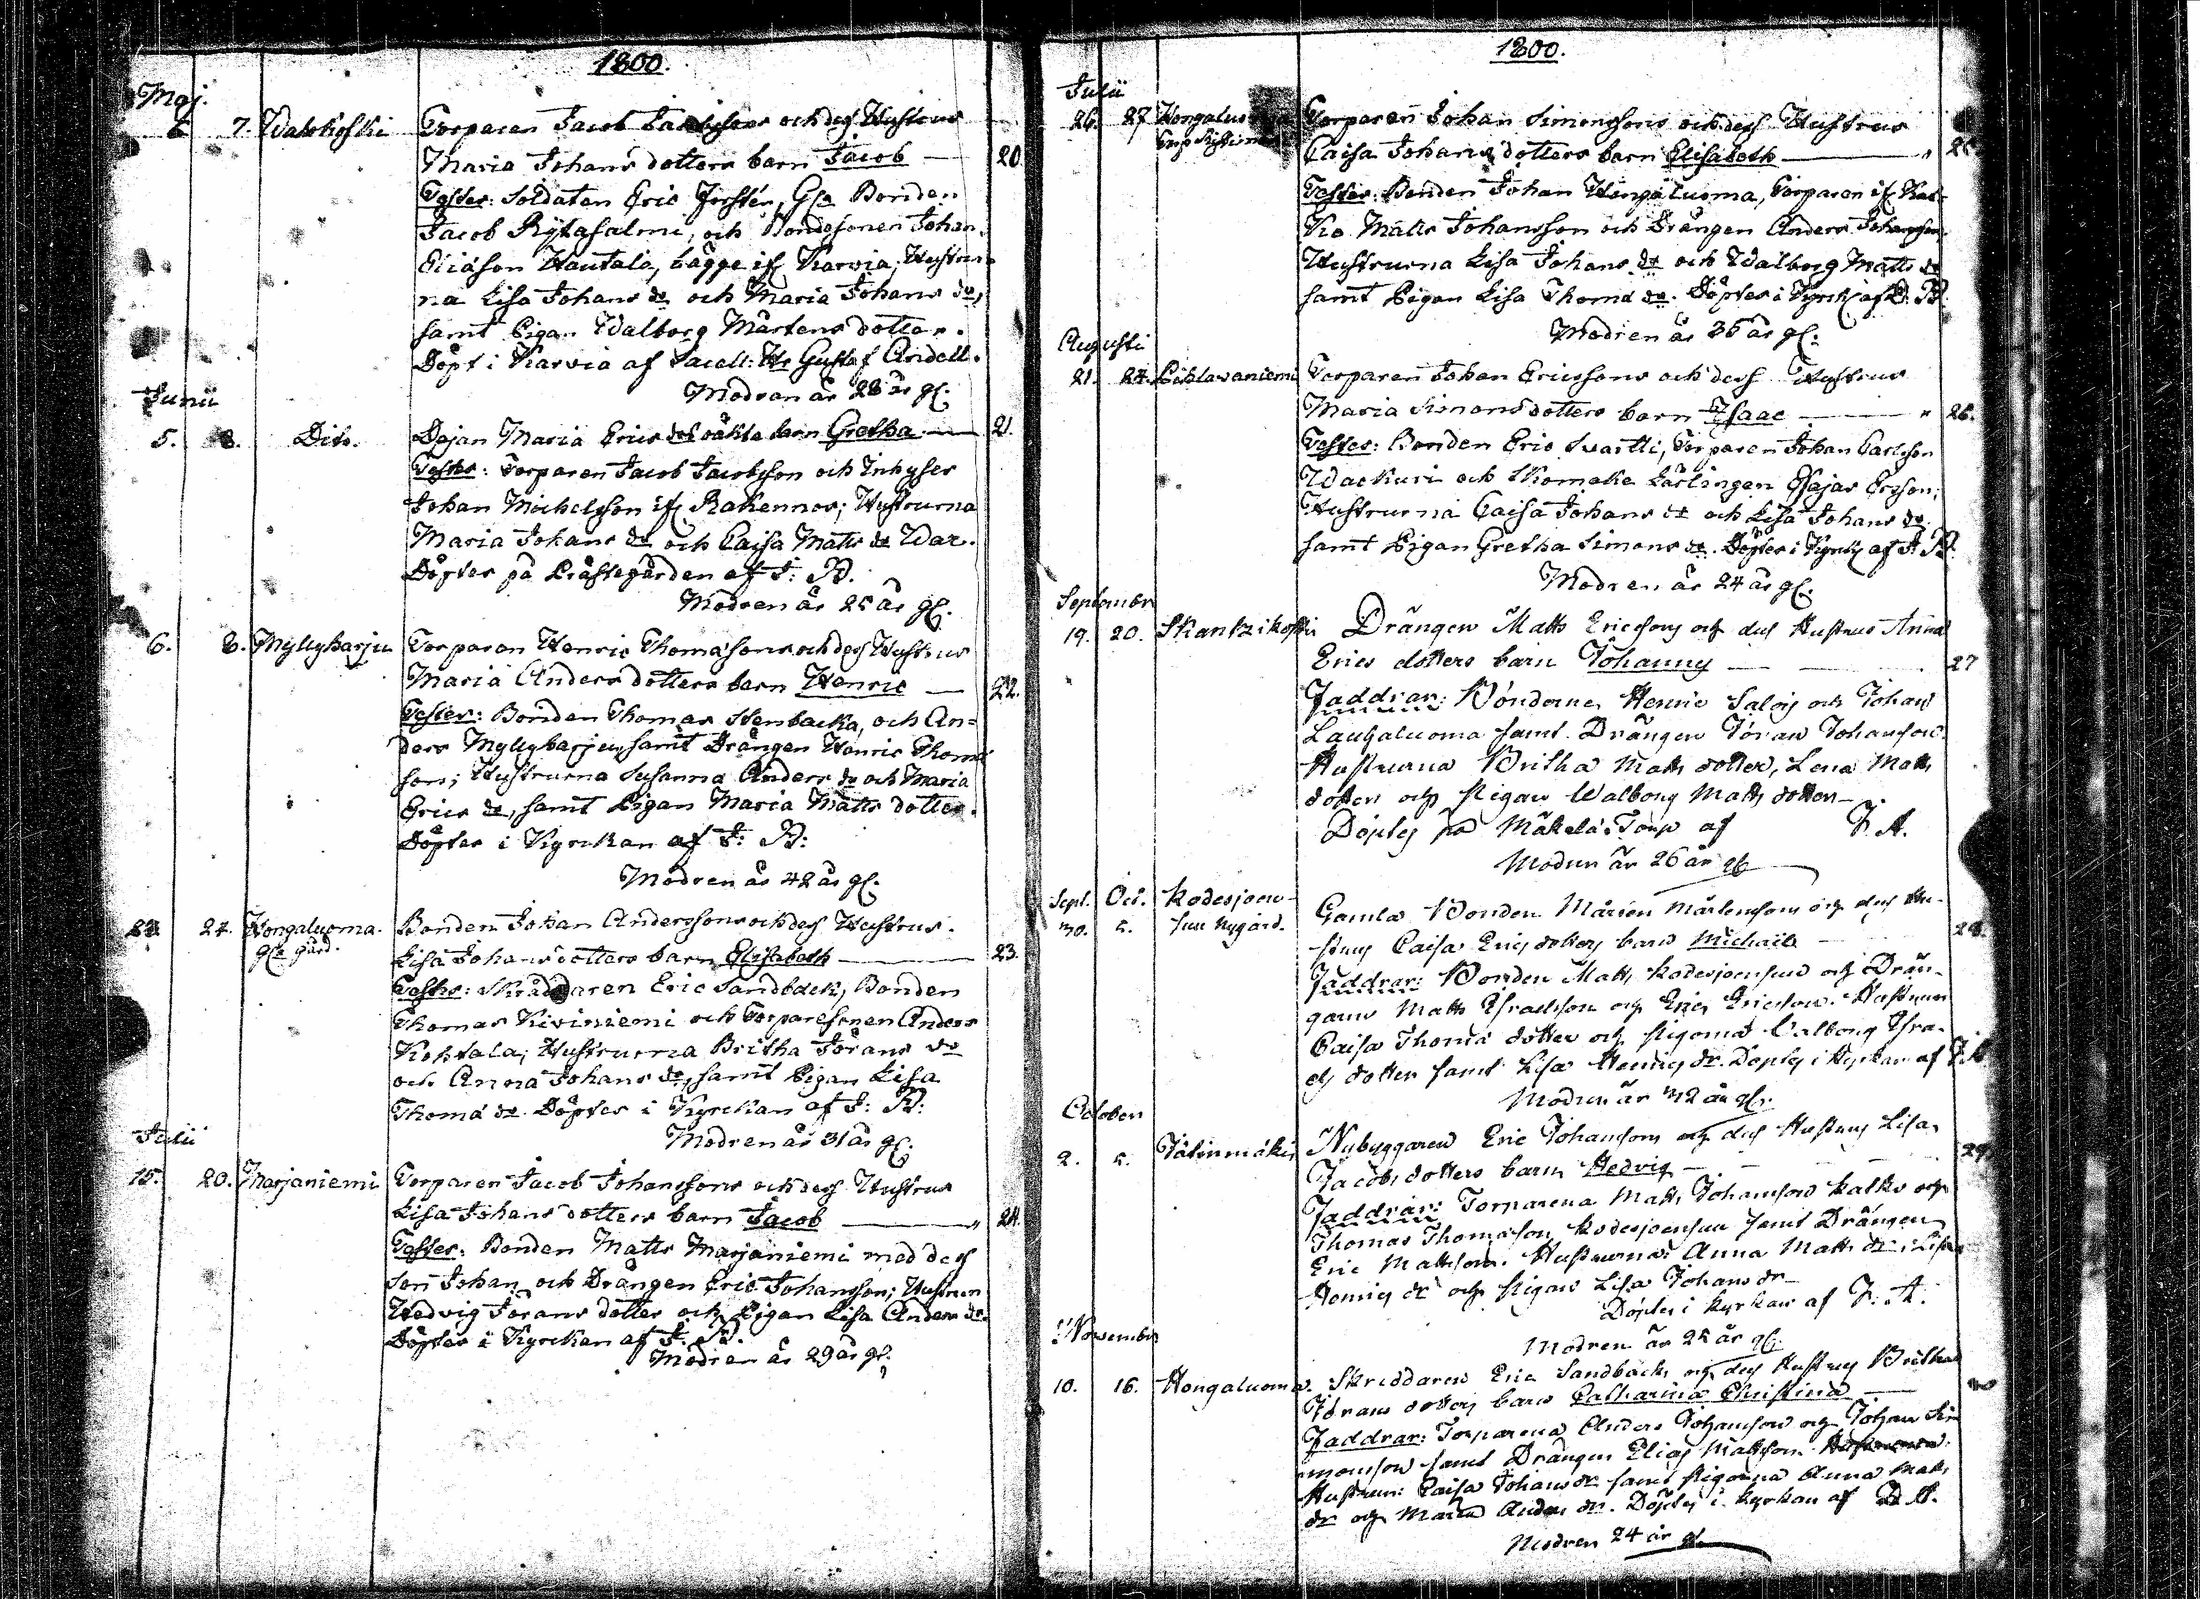 1800.
Maj.
6. 7. Wakkoski Torparen Jacob Jacobssons och dess Hustrus
Maria Johans dotters barn Jacob — 20.
Testes: Soldaten Eric Forstén, Gla Bonden
Jacob Rytasalmi, och Bondesonen Johan
Eliasson Hautala, bägge if. Karvia; Hustrur-
na Lisa Johans dr och Maria Johans dr,
samt Pigan Walborg Mårtens dotter.
Döpt i Karvia af Sacell: Hr Gustaf Aridell.
Modren är 28 år gl.
Junii
5. 8. Dito. Dejan Maria Erics drs oäkta barn Gretha — 21.
Testes: Torparen Jacob Jacobsson och Inhyses
Johan Michelsson if. Rakennos; Hustrurna
Maria Johans dr och Caisa Matts dr War.
Döptes på Prästegården af J: B.
Modren är 25 år gl.
6. 8. Myllyharju Torparen Henric Thomæsons och dess Hustrus
Maria Anders dotters barn Henric — 22.
Testes: Bonden Thomas Stenbacka, och An-
ders Myllyharju, samt Drängen Henric Thomæ
son; Hustrurna Susanna Anders dr och Maria
Erics dr, samt Pigan Maria Matts dotter.
Döptes i Kyrckan af J: B:
Modren är 42 år gl.
24. Hongaluoma. Bonden Johan Anderssons och dess Hustrus
gla gård. Lisa Johans dotters barn Elisabeth — 23.
Testes: Skräddaren Eric Sandbäck, Bonden
Thomas Kiviniemi och Torparesonen Anders
Kohtala; Hustrurna Britha Jörans dr
och Anna Johans dr, samt Pigan Lisa
Thomæ dr. Döptes i Kyrckan af J: B:
Modren är 31 år gl.
Julii
15. 20. Marjaniemi Torparen Jacob Johanssons och dess Hustrus
Lisa Johans dotters barn Jacob — " 24.
Testes: Bonden Matts Marjaniemi med dess
son Johan, och Drängen Eric Johansson; Hustrun
Hedvig Jörans dotter och Pigan Lisa Anders dr.
Döptes i Kyrckan af J: B.
Modren är 29 år gl.
1800.
Julii
26. 27. Hongaluoma Torparen Johan Simonssons och dess Hustrus
Caisa Johans dotters barn Elisabeth — " 25.
Testes: Bonden Johan Hongaluoma, Torparen if. Kal-
ko Matts Johansson och Drängen Anders Johansson,
Hustrurna Lisa Johans dr och Walborg Matts dr
samt Pigan Lisa Thomæ dr. Döptes i Kyrck. af J: B.
Modren är 35 år gl.
Augusti
21. 24. Pihlavaniemi Torparen Johan Ericssons och dess Hustrus
Maria Simons dotters barn Isaac — " 26.
Testes: Bonden Eric Svartti, Torparen Johan Carlsson
Wackuri och Skomake Lärlingen Esajas Ersson;
Hustrurna Caisa Johans dr och Lisa Johans dr
samt Pigan Gretha Simons dr. Döptes i Kyrck. af J: B.
Modren är 24 år gl.
September
19. 20. Skantzikoski Drängen Matts Ericssons och des Hustrus Anna
Erics dotters barn Johannes — 27
Faddrar: Bönderne Henric Salois och Johan
Lauhaluoma samt Drängen Jöran Johansson.
Hustrurna Britha Matts dotter, Lena Matts
dotter och Pigan Walborg Matts dotter —
Döptes på Mäkelä Torp af J. A.
Modren är 26 år gl.
Sept. Oct. Kodesjoen- Gamla Bonden Mårten Mårtenssons och des Hu-
30. 5. suu Nygård. strus Caisa Erics dotters barn Michaël — 28.
Faddrar: Bonden Matts Kodesjoensuu och Drän-
garne Matts Esraelsson och Eric Ericsson. Hustrun
Caisa Thomæ dotter och Pigorna Valborg Isra-
els dotter samt Lisa Henrics dr. Döptes i Kyrkan af J. A.
Modren är 42 år gl.
October
2. 5. Nybyggaren Eric Johanssons och des Hustrus Lisa 29.
Jacobs dotters barn Hedvig —
Faddrar: Torparena Matts Johansson Kalko och
Thomas Thomasson Kodesjoensuu samt Drängen
Eric Mattsson. Hustrurna: Anna Matts dr, Lisa
Henrics dr och Pigan Lisa Johans dr —
Döptes i Kyrkan af J. A.
Modren är 25 år gl.
November
10. 16. Hongaluoma. Skreddaren Eric Sandbäcks och des Hustrus Britha
Jörans dotters barn Catharina Christina —
Faddrar: Torparena Anders Johansson och Johan Si-
monsson samt Drängen Elias Mattsson.
Hustrun: Caisa Johans dr samt Pigorna Anna Matts
dr och Maria Anders dr. Döptes i Kyrkan af J. A.
Modren 24 år gl.